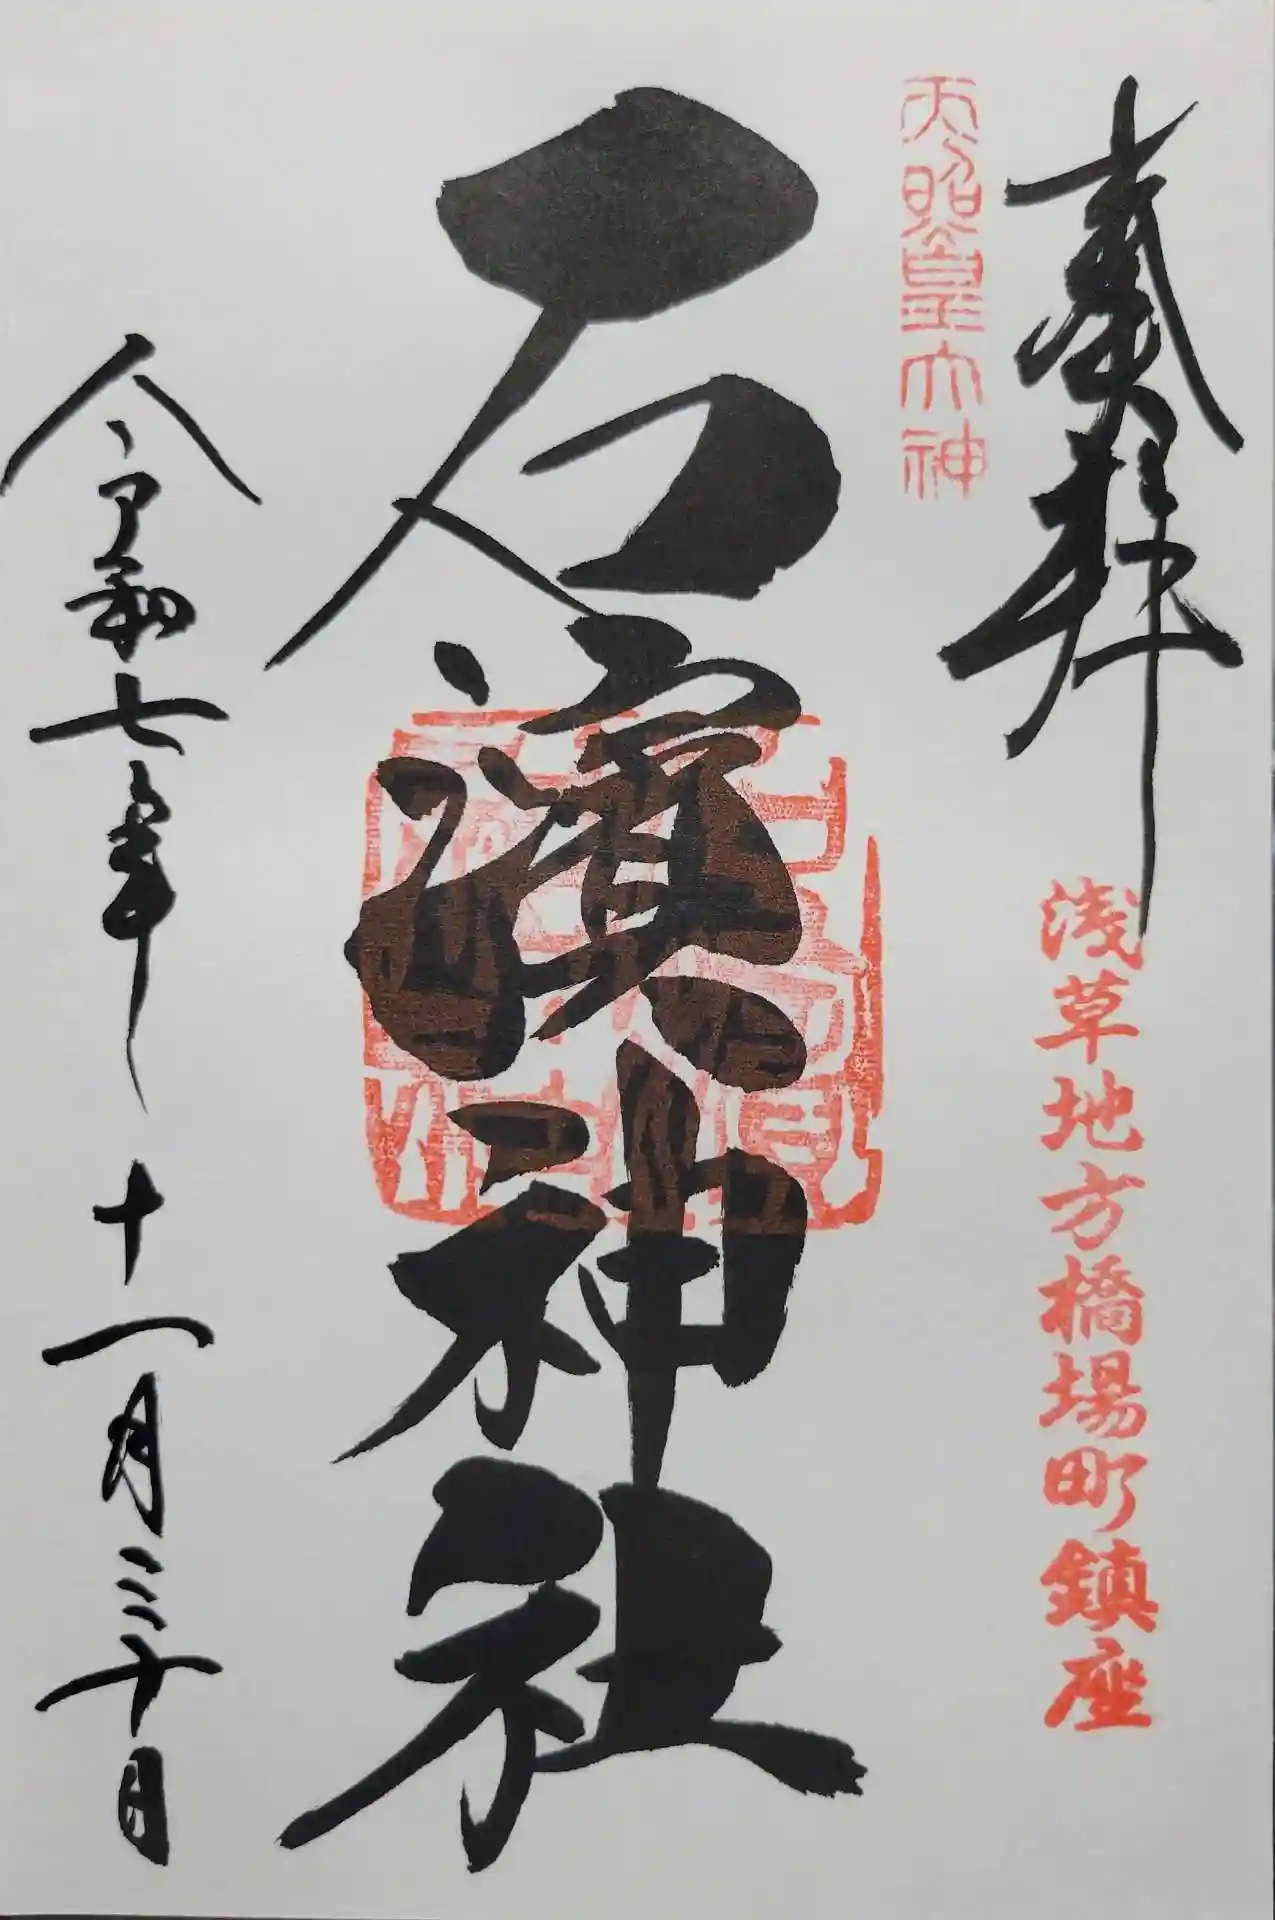 奉拝
浅草地方橋場町鎮座
天照皇大神
石濱神社
令和七年十一月三十日